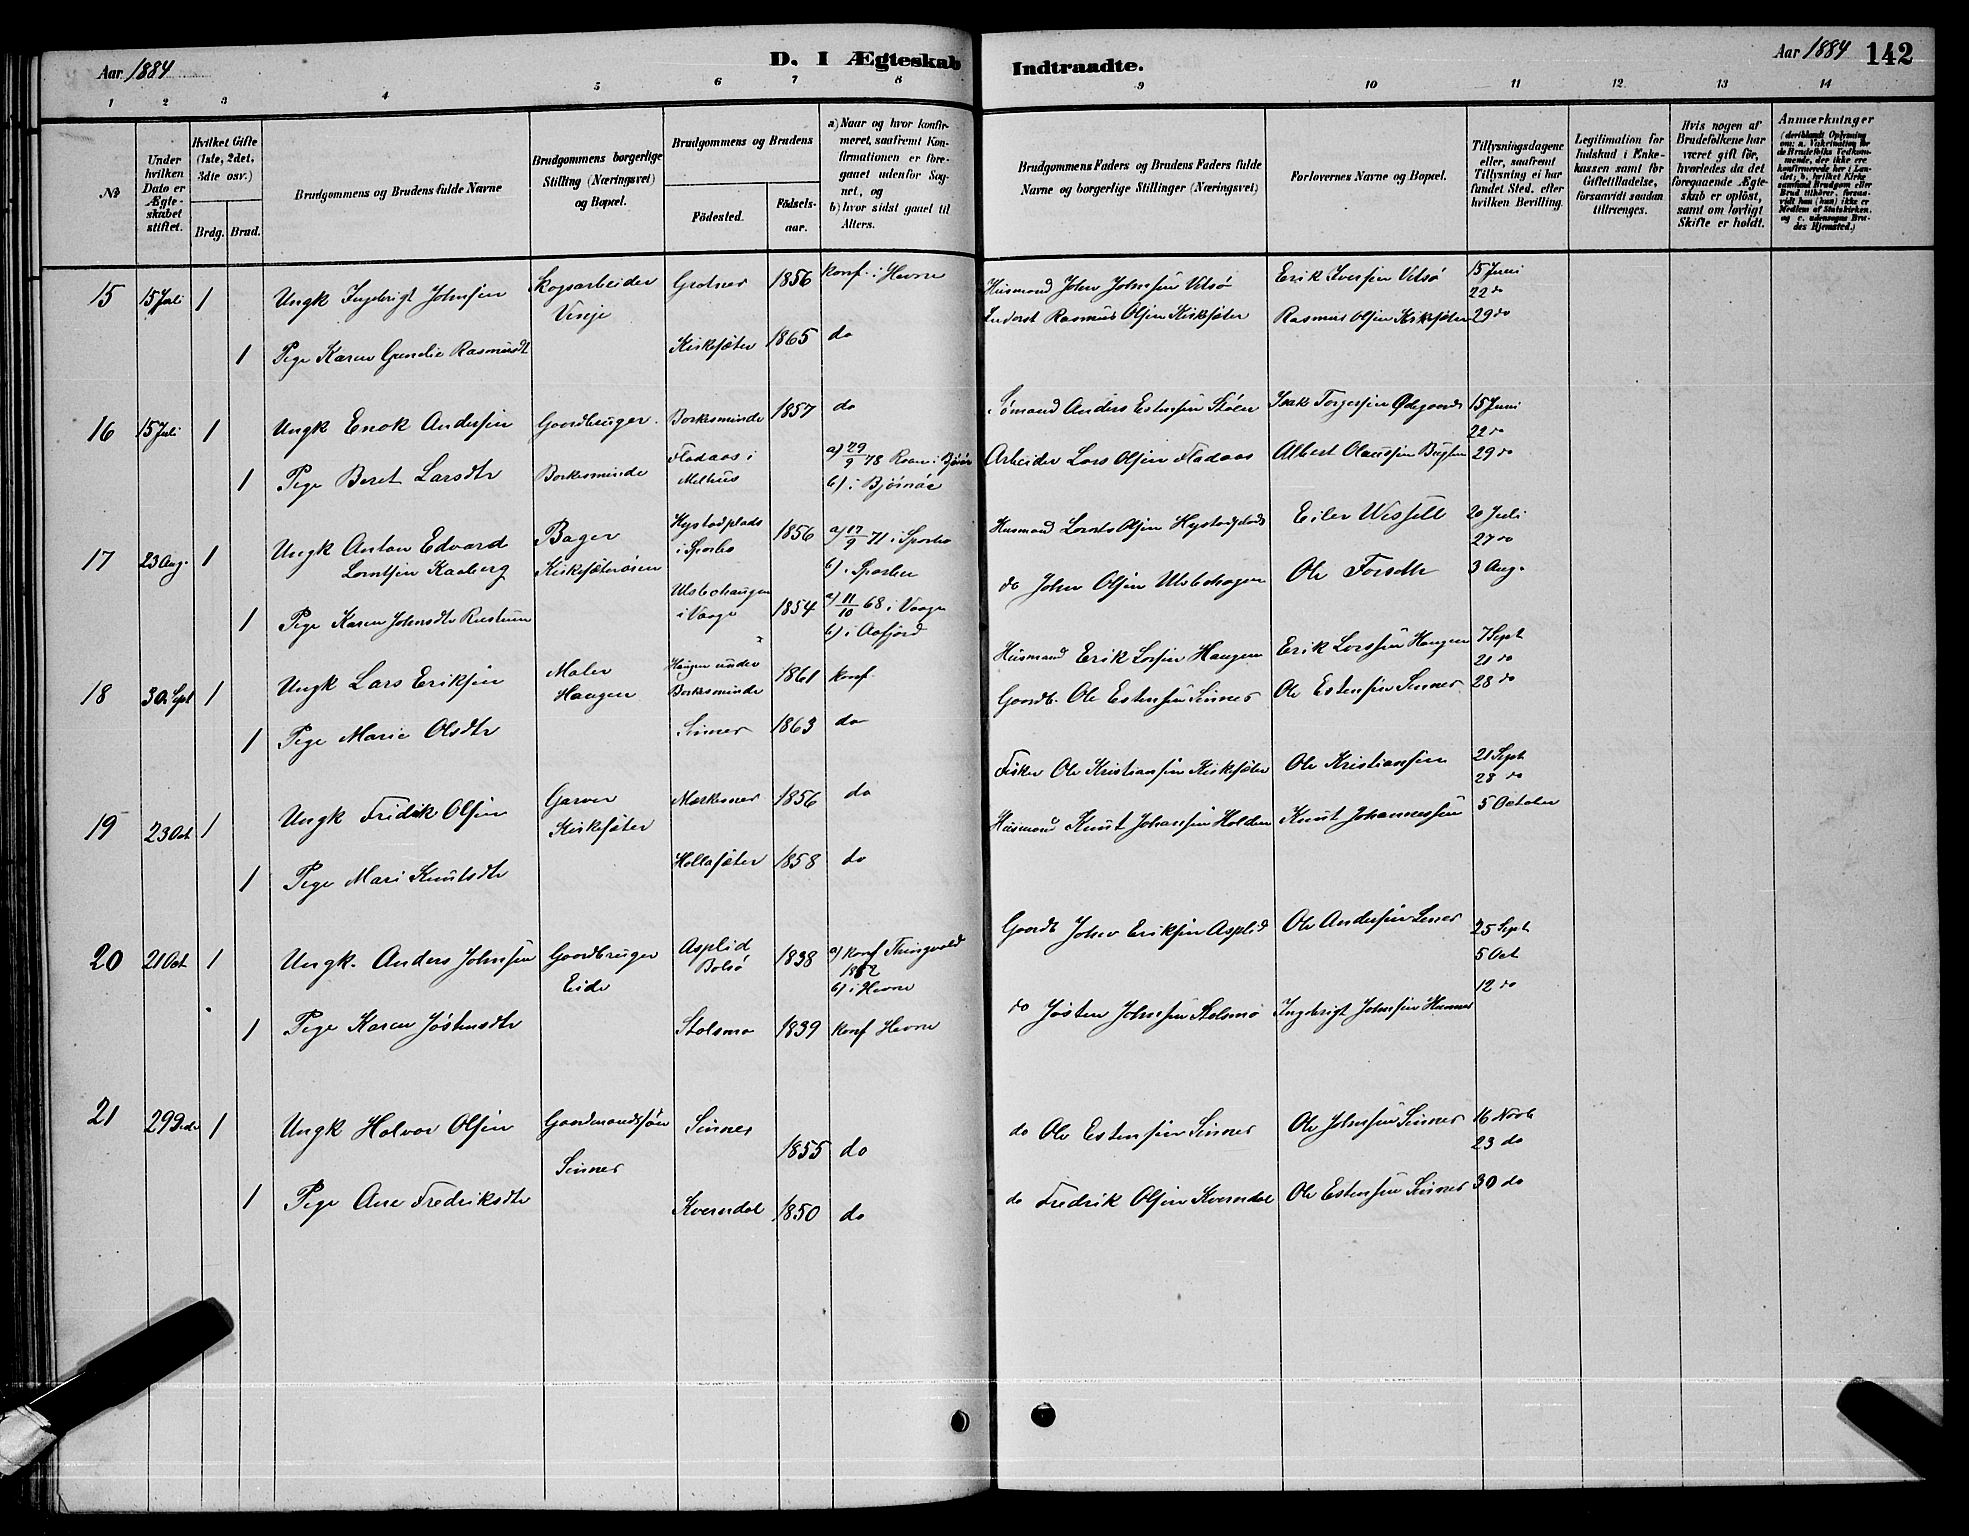 Aar 1884
D. I Ægteskab
Indtraadte.
Aar 1884 142
1 2 3 4 5 6 7 8 9 10 11 12 13 14
No
Under hvilken Dato er Ægteskabet stiftet.
Hvilket Gifte (1ste, 2det, 3die osv.)
Brdg. Brud.
Brudgommens og Brudens fulde Navne
Brudgommens borgerlige Stilling (Næringsvei) og Bopæl.
Brudgommens og Brudens
Fødested.
Fødselsaar.
a) Naar og hvor konfirmeret, saafremt Konfirmationen er foregaaet udenfor Sognet, og
b) hvor sidst gaaet til Alters.
Brudgommens Faders og Brudens Faders fulde Navne og borgerlige Stillinger (Næringsvei)
Forlovernes Navne og Bopæl.
Tillysningsdagene eller, saafremt Tillysning ei har fundet Sted. efter hvilken Bevilling.
Legitimation for Indskud i Enkekassen samt for Giftetilladelse, forsaavidt saadan tiltrænges.
Hvis nogen af Brudefolkene har været gift før, hvorledes da det foregaaende Ægteskab er opløst, samt om lovligt Skifte er holdt.
Anmærkninger
15 15 Juli 1 Ungk Ingebrigt Johnsen Skogsarbeider Vinje Grotnes 1856 konf. i Hevne Husmand John Johnsen Vitsø Erik Iversen Vitsø 15 Juni
22 do
1 Pige Karen Gundie Rasmusdt Kirksæter 1865 do Inderst Rasmus Olsen Kirksæter Rasmus Olsen Kirksæter 29 do
16 15 Juli 1 Ungk Enok Andersen Gaardbruger Borkesminde 1857 do Sømand Anders Estensen Stølen Isak Torgersen Ødegaard 15 Juni
22 do
1 Pige Beret Larsdtr Borkesminde Fladaas i Melhus a) 29/9 78 Roan i Bjørnør b) i Bjørnør Arbeider Lars Olsen Fladaas Albert Olaussen Bugten 29 do
17 23 Aug. 1 Ungk Anton Edvard Lorntsen Kaaberg Bager Kirksæterøren Hystadplads i Sparbo 1856 a) 17/9 71 i Sparbo b) i Sparbu Husmand Lornts Olsen Hystadplads Eiler Wessell 20 Juli
27 do
1 Pige Karen Johnsdtr Rustuen Ulsbohaugen i Vaage 1854 a) 11/10 68 i Vaage b) i Aafjord do John Olsen Ulsbohagen Ole Forseth 3 Aug.
18 30 Sept 1 Ungk Lars Eriksen Maler Haugen Haugen under Borkesminde 1861 konf. Husmand Erik Larsen Haugen Erik Larssen Haugen 7 Sept
21 do
1 Pige Marie Olsdtr Sinnes 1863 do Gaardb. Ole Estensen Sinnes Ole Estensen Sinnes 28 do
19 23 Oct 1 Ungk Fridrik Olsen Garver Kirksæter Mærkesnes 1856 do Fisker Ole Kristiansen Kirksæter Ole Kristiansen 21 Sept
28 do
1 Pige Mari Knutsdtr Hollasæter 1858 do Husmand Knut Johansen Holden Knut Johannessen 5 October
20 21 Oct 1 Ungk. Anders Johnsen Gaardbruger Eide Asplid Bolsø 1838 a) konf Thingvold 1852 b) i Hevne Gaardb John Eriksen Asplid Ole Andersen Lenes 25 Sept
5 Oct
12 do
1 Pige Karen Jøstensdtr Stolsmo 1839 konf Hevne do Jøsten Johnsen Stolsmo Ingebrigt Johnsen Hammer
21 29 Decbr 1 Ungk Halvor Olsen Gaardmandssøn Sinnes Sinnes 1855 do do Ole Estensen Sinnes Ole Johnsen Sinnes 16 Novb
23 do
1 Pige Ane Fredriksdtr Kverndal 1850 do do Fredrik Olsen Kverndal Ole Estensen Sinnes 30 do